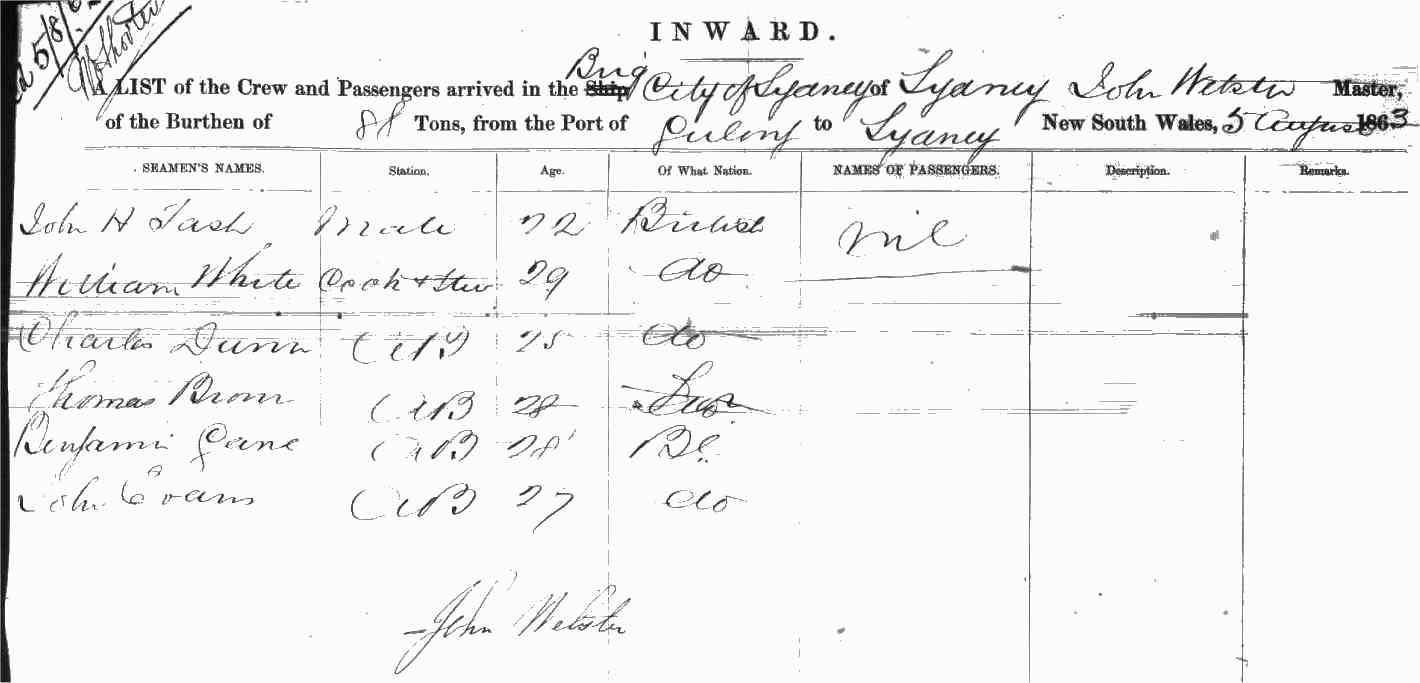 5/8/6
INWARD.
A LIST of the Crew and Passengers arrived in the Ship Brig City of Sydney of Sydney John Webster Master,
of the Burthen of 88 Tons, from the Port of to Sydney New South Wales, 5 August 1863
SEAMEN'S NAMES. Station. Age. Of What Nation. NAMES OF PASSENGERS. Description. Remarks.
John H Tash Mate 22 British nil
William White Cook & Stew 29 do
Charles Dunn AB 25 do
Thomas Brown AB 28
Benjamin Cane AB 28 Br.
John Evans AB 27 do
John Webster